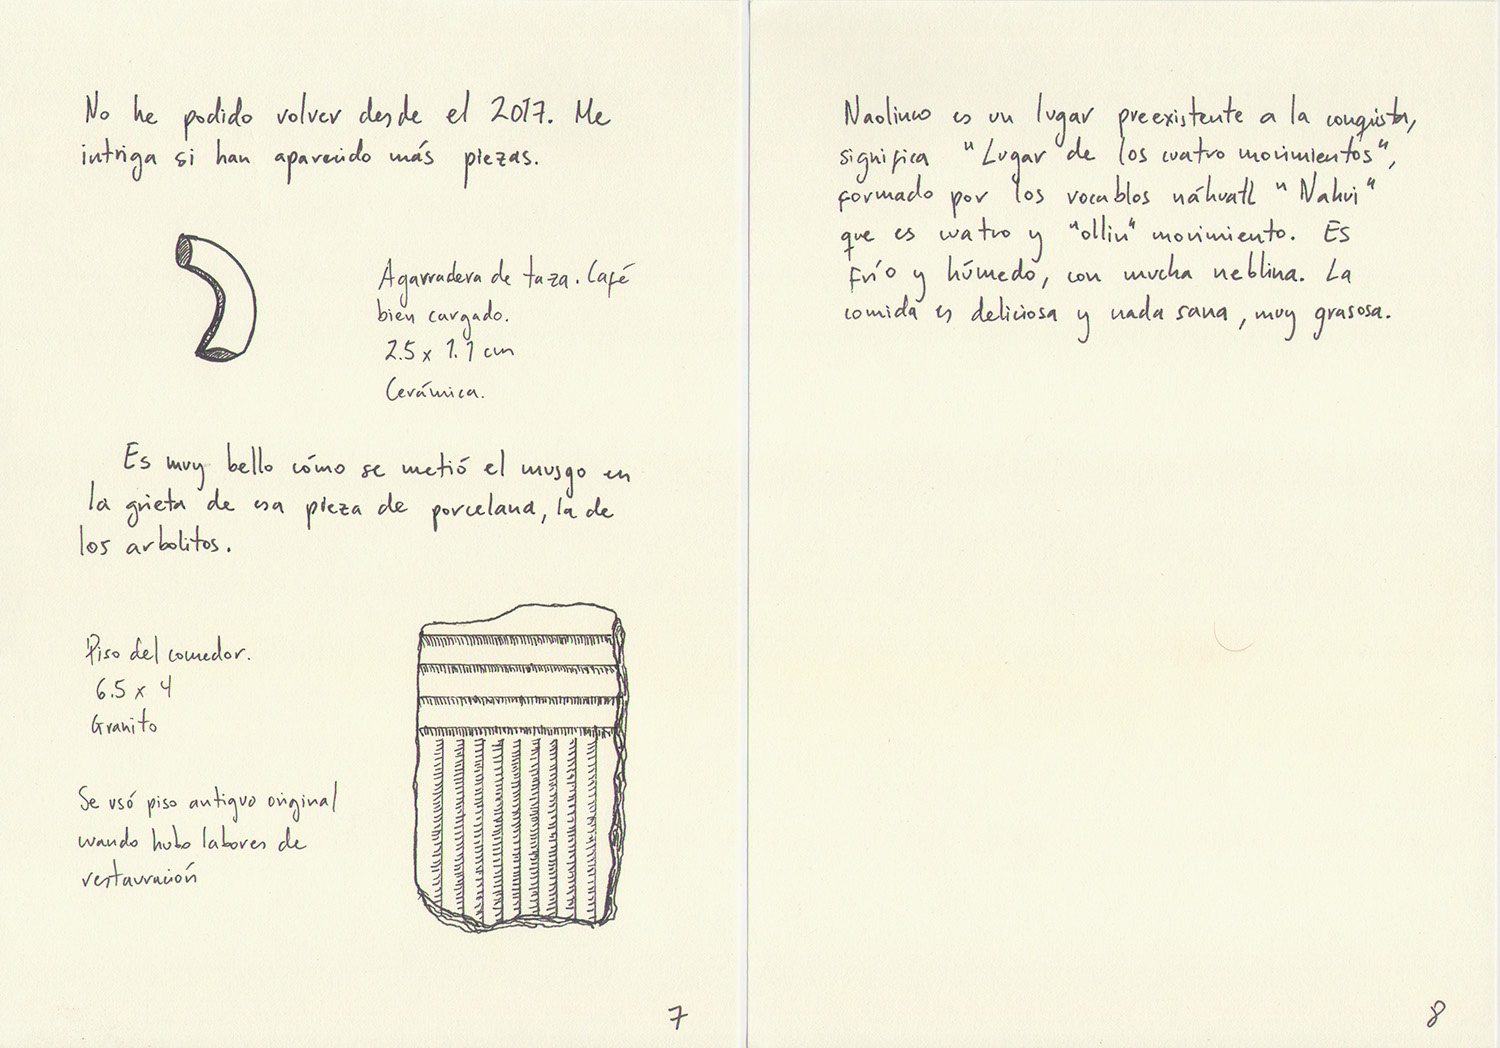 No he podido volver desde el 2017. Me
intriga si han aparecido más piezas.
Agarradera de taza. Café
bien cargado.
2.5 x 1.1 cm
Cerámica.
Es muy bello cómo se metió el musgo en
la grieta de esa pieza de porcelana, la de
los arbolitos.
Piso del comedor.
6.5 x 4
Granito
Se usó piso antiguo original
cuando hubo labores de
restauración
7
Naolinco es un lugar preexistente a la conquista,
significa "Lugar de los cuatro movimientos",
formado por los vocablos náhuatl "Nahui"
que es cuatro y "ollin" movimiento. Es
frío y húmedo, con mucha neblina. La
comida es deliciosa y nada sana, muy grasosa.
8